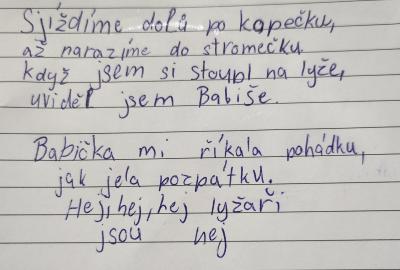 Sjíždíme dolů po kopečku,
až narazíme do stromečku
když jsem si stoupl na lyže,
uviděl jsem Babiše.
Babička mi říkala pohádku,
jak jela pozpátku.
Hej, hej, hej lyžaři
jsou hej